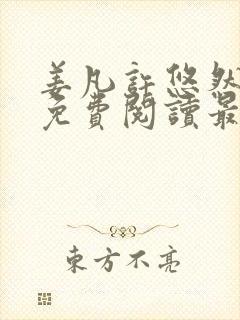 姜凡許悠然
免費閱讀最
東方不亮